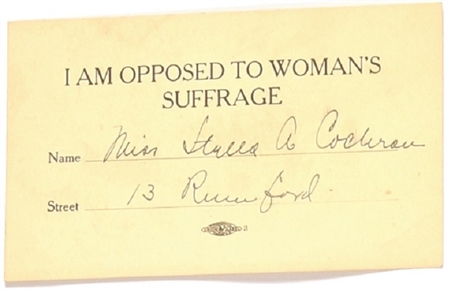 I AM OPPOSED TO WOMAN'S
SUFFRAGE
Name Miss Stella A Cochran
Street 13 Rumford